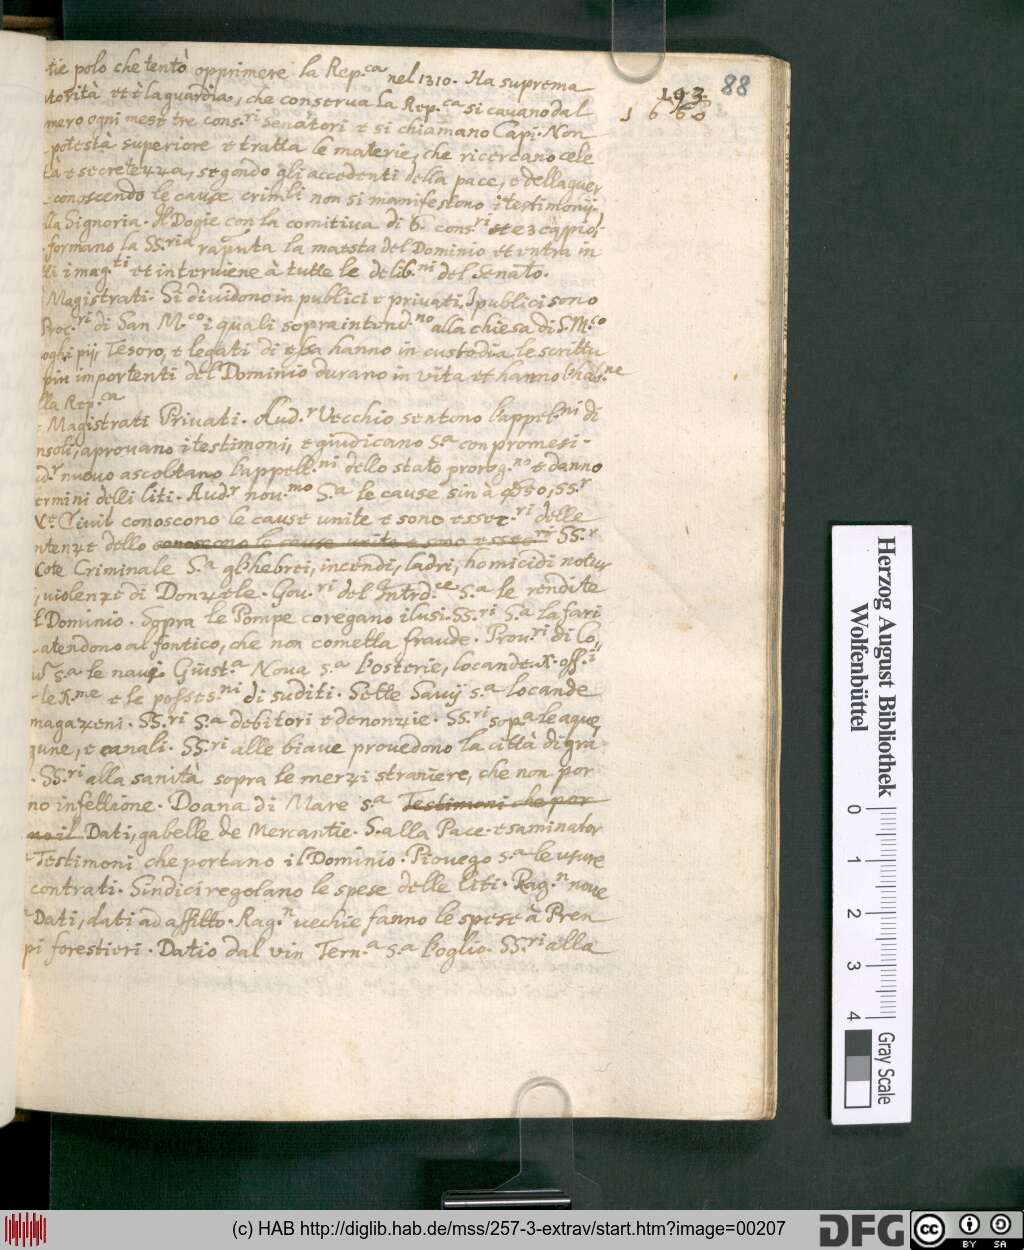 tie polo che tentò opprimere la Rep.ca nel 1310. Ha suprema
torità et è la guardia, che conserua la Rep.ca si cauano dal
mero ogni mese tre cons.ri Senatori e si chiamano Capi. Non
potestà superiore e tratta le materie, che ricercano cele
tà e secretezza, segondo gli accedenti della pace, e della guer
conoscendo le cause crim.li non si manifestono i testimonij
lla Signoria. Il Dogie con la comitiua di 6. cons.ri et e 3 capi
formano la SS.ria la maesta del Dominio et entra in
ti i mag.ti et interuiene à tutte le delib.ni del Senato.
Magistrati. Si diuidono in publici e priuati. I publici sono
Proc.ri di San M.co i quali sopraintend.no alla chiesa di S. M.co
oghi pij, Tesoro, e legati di essa hanno in custodia le scrittu
piu importenti del Dominio durano in vita et hanno l'hab.ne
lla Rep.ca
Magistrati Priuati. Aud.r Vecchio sentono l'appel.ni di
nsoli, aprouano i testimoni, e giudicano S.a con promesi-
d.r nuouo ascoltano l'appell.ni dello stato prorog.no e danno
ermini delli liti. Aud.r nou.mo S.a le cause sin à SS.r
Ciuil conoscono le cause unite e sono essec.ri delle
ntenze dello conoscono le cause unite e sono essec.ri SS.r
Criminale S.a gl'hebrei, incendi, ladri, homicidi notur
violenze di Donzele. Gou.ri del Intrd.ce S.a le rendite
l Dominio. Sopra le Pompe coregano i lusi. SS.ri S.a la fari
atendono al fontico, che non cometta fraude. Prou.ri di Co
s.a le naui. Giust.a Noua s.a l'osterie, locande
e le posses.ni di suditi. Sette Sauij s.a locande
magazeni. SS.ri S.a debitori e denonzie. SS.ri sop.a le aque
gune, e canali. SS.ri alle biaue prouedono la città di gra
SS.ri alla sanità sopra le merzi straniere, che non por
no infettione. Doana di Mare s.a Testimoni che por
no il Dati, gabelle de Mercantie. S.alla Pace esaminator
Testimoni che portano il Dominio. Piouego s.a le usure
contrati. Sindici regolano le spese delle liti. Rag.n noue
Dati, dati ad affitto. Rag.n uechie fanno le spese à Pren
pi forestieri. Datio dal vin Tern.a s.a l'oglio. SS.ri alla
193
1660
88
Herzog August Bibliothek
Wolfenbüttel
0 1 2 3 4
Gray Scale
(c) HAB http://diglib.hab.de/mss/257-3-extrav/start.htm?image=00207
DFG
cc BY SA